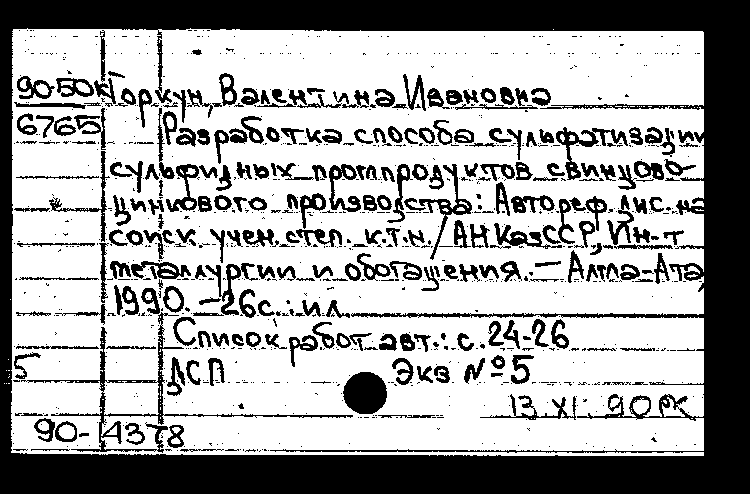 90-50к Горкун, Валентина Ивановна
6765 Разработка способа сульфатизации
сульфидных промпродуктов свинцово-
цинкового производства: Автореф. дис. на
соиск. учен. степ. к.т.н. / АН КазССР, Ин-т
металлургии и обогащения. — Алма-Ата,
1990. — 26с.: ил.
Список работ авт.: с. 24-26
5 ДСП Экз № 5
13. XI. 90
90-14378